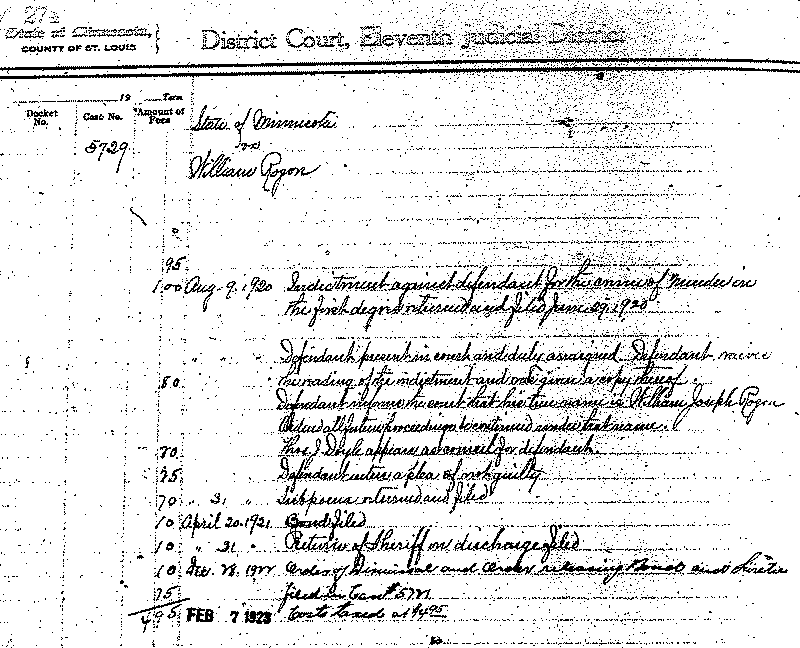 27½
State of Minnesota,
COUNTY OF ST. LOUIS
District Court, Eleventh Judicial District
19 Term
Docket No. Cast No. Amount of Fees
State of Minnesota
5729 vs
William Rozon
95
1 00 Aug. 9, 1920 Indictment against defendant for the crime of murder in
the first degree returned and filed June 29, 1920
" " " Defendant present in court and duly arraigned. Defendant waive
80 the reading of the indictment and was given a copy thereof.
Defendant informs the court that his true name is William Joseph Rozon
Ordered all future proceedings to continued under that name.
70 Thos J Doyle appears as counsel for defendant.
25 Defendant enters a plea of not guilty
70 " 31 " Subpoena returned and filed
10 April 20, 1921 Bond filed
10 " 21 " Return of Sheriff on discharge filed
10 Dec. 28, 1922 Order of Dismissal and Order releasing Bond and Sureties
75 filed in Case # 5721
4 95 FEB 7 1923 Costs taxed at $4.95